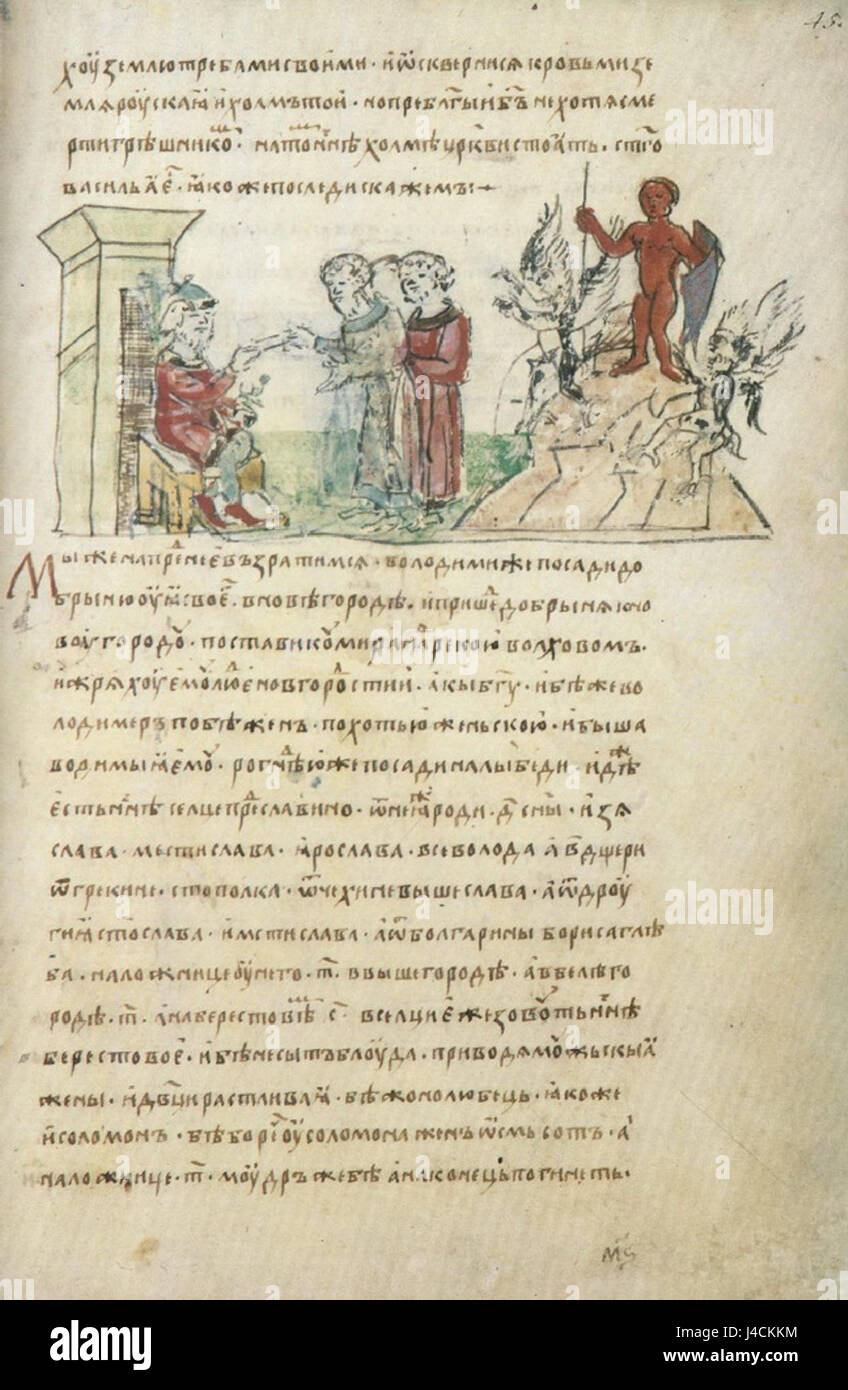 45.
хоуземлютребамисвоими · иѡсквернисѧкровьмизе
млѧроускаꙗихолмътои · нопребл҃гыиб҃ънехотѧсме
ртигрѣшникѡ · натоⷨннѣхолмѣцр҃квистоꙗть · ст҃го
васильꙗеⷭ · ꙗкожепоследискажемъ:~
Мыженапреⷣнеевъзратимсѧ · володимижепосадидо
брынюоуꙗсвоеⷢ · вновѣгородѣ · ипришеⷣдобрынѧкно
воугородоу · поставикоумиринаⷣрекоюволховомъ ·
ижрѧхоуемоулюⷣеновгороⷣстии · акыб҃гу · ибѣжево
лодимеръпобѣженъ · похотьюженьскою · ибыша
водимыꙗемоу · рогънѣⷣюжепосадиналыбеди · идѣⷤ
естьннⷩѣселцепреⷣславино · ѿнеꙗⷤроди · д҃сн҃ы · изѧ
слава · мьстислава · ꙗрослава · всеволода а҃в҃дщери
ѿгрекине · ст҃ополка · ѿчехиневышеслава · аѿдроу
гиꙗст҃ослава · имстислава · аѿболгариныборисаглѣ
ба · наложницебоуунего · т҃ · ввышегородѣ · авбелѣго
родѣ · т҃ · анаберестовѣⷨ с҃ вселциежезовоутьннⷩѣ
берестовоеⷷ · ибѣнесытъблоуда · приводѧмоужьскыꙗ
жены · идв҃цирастливаꙗ · бѣжонолюбець · ꙗкоже
исоломонъ · бѣборⷱ҇еоусоломонаженъѡсмьсотъ · а
наложнице · т҃ · моудръжебѣанаконецьпогибеть ·
м҃ѕ
alamy stock photo
J4CKKM
www.alamy.com